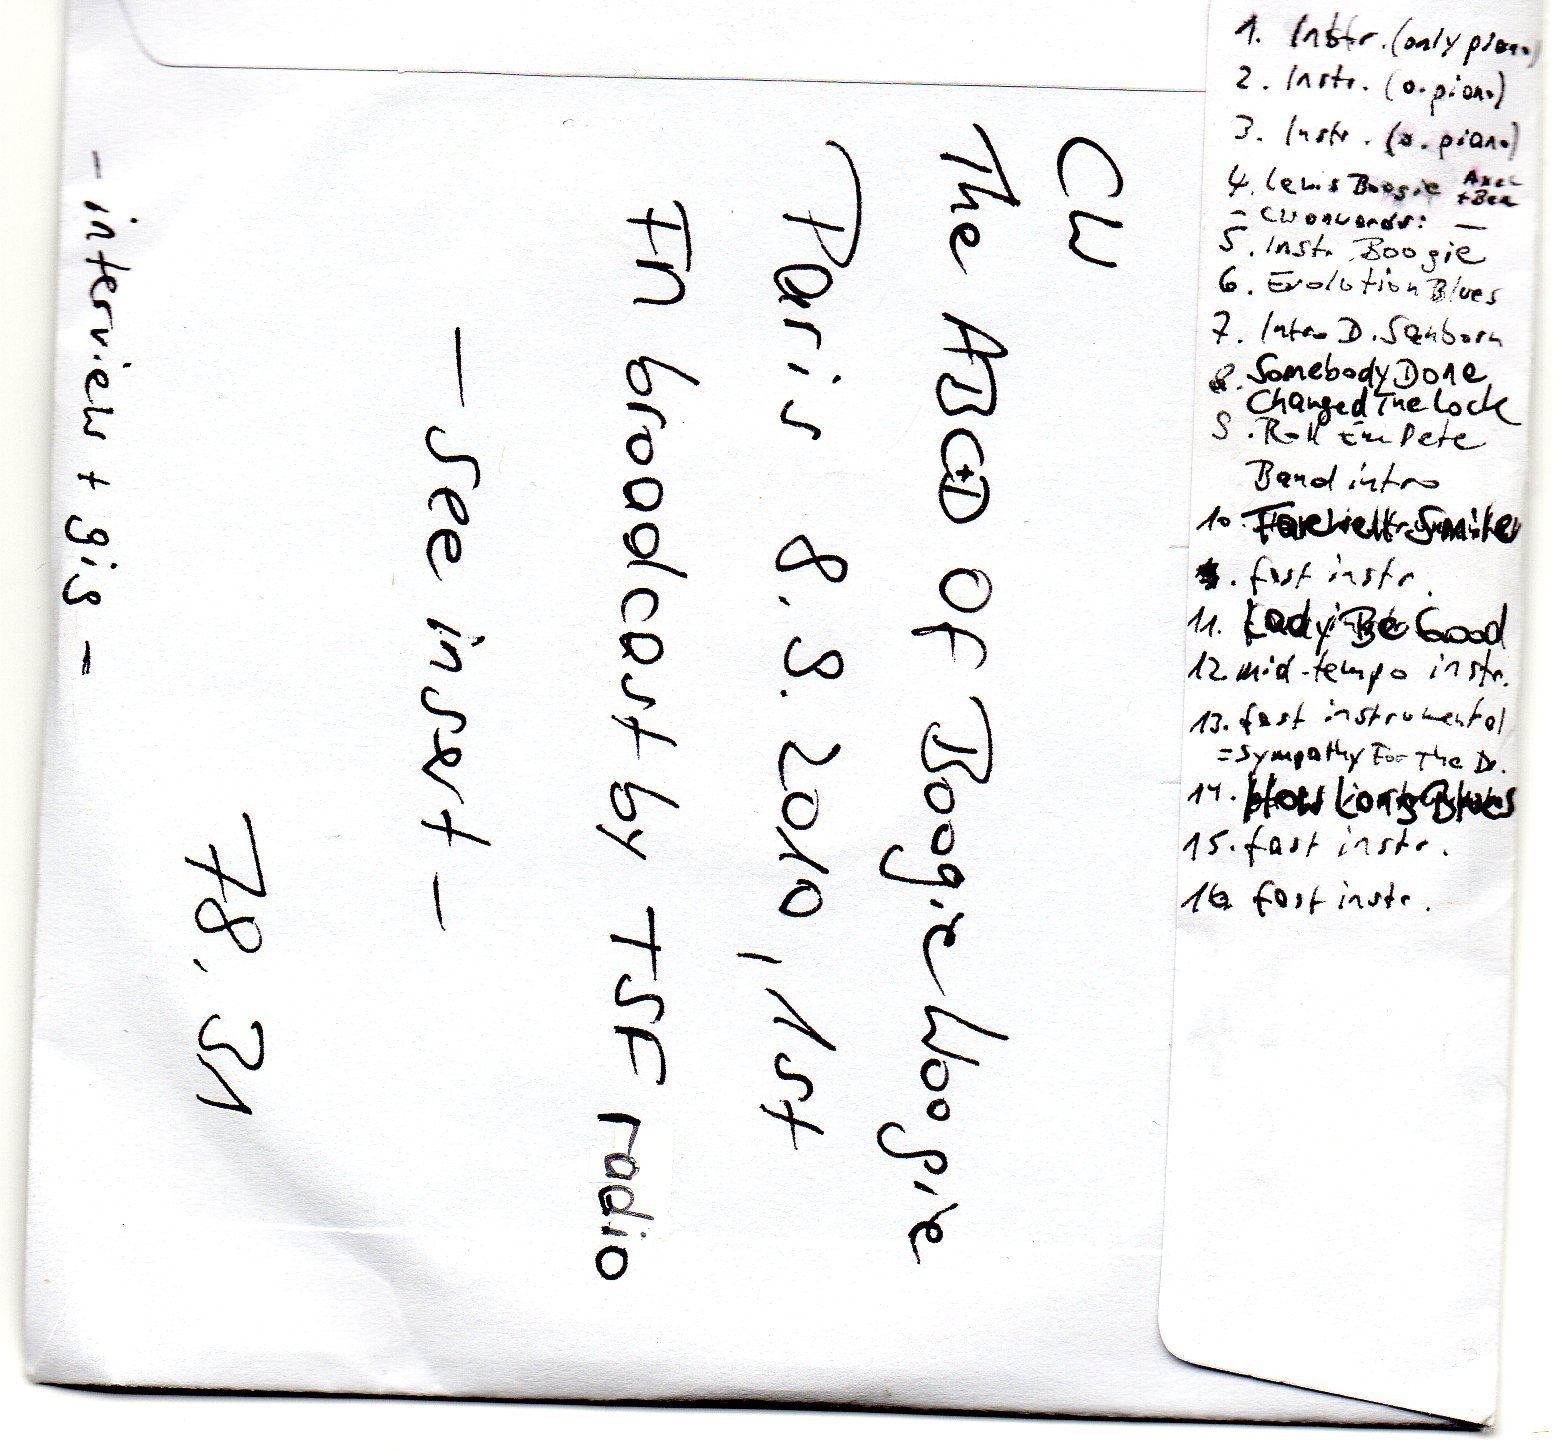 CW
The ABC+D Of Boogie Woogie
Paris 8.9.2010, 1st
FM broadcast by TSF radio
- see insert -
78.31
- interview + gig -
1. Instr. (only piano)
2. Instr. (o. piano)
3. Instr. (o. piano)
4. Lewis Boogie Axel + Ben
- CW onwards: -
5. Instr. Boogie
6. Evolution Blues
7. Intro D. Sanborn
8. Somebody Done
Changed The Lock
9. Roll Em Pete
Band intro
10. Smile
fast instr.
11. Lady Be Good
12. mid-tempo instr.
13. fast instrumental
= Sympathy For The D.
14. How Long Blues
15. fast instr.
16. fast instr.